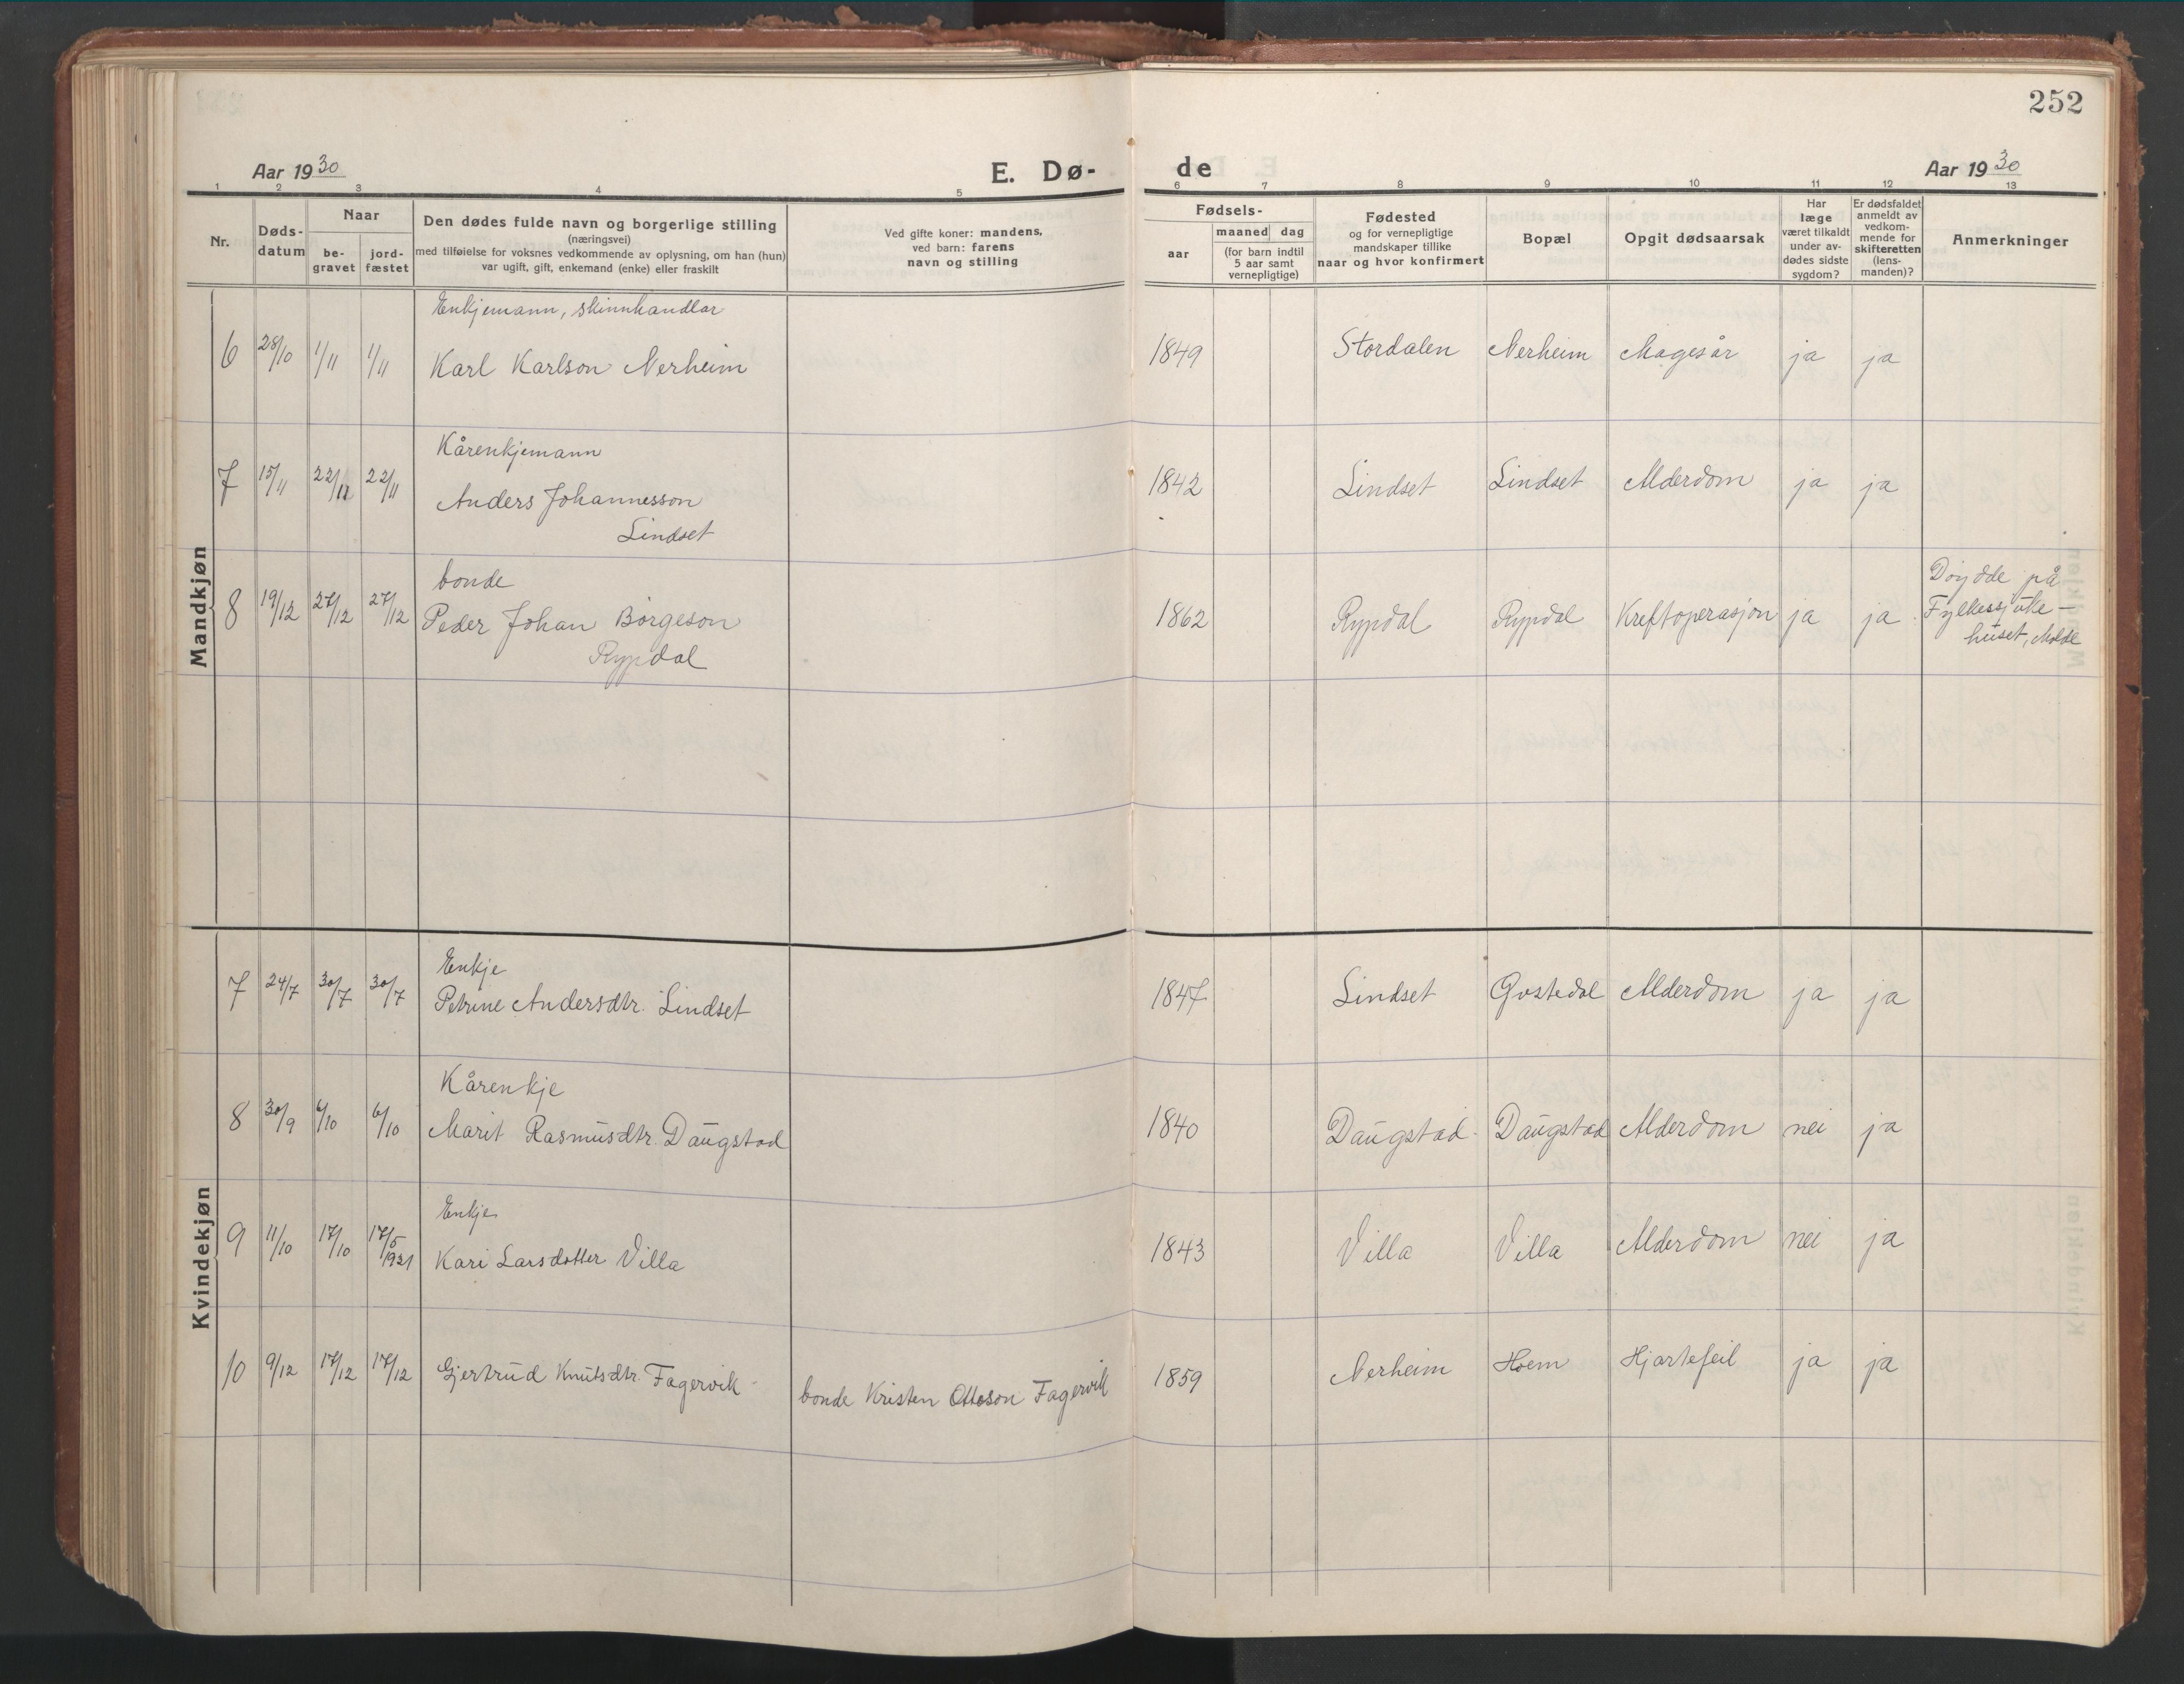 252
Aar 1930 E. Dø- de Aar 1930
1 2 3 4 5 6 7 8 9 10 11 12 13
Nr.
Døds-
datum
Naar
be-
gravet
jord-
fæstet
Den dødes fulde navn og borgerlige stilling
(næringsvei)
med tilføielse for voksnes vedkommende av oplysning, om han (hun)
var ugift, gift, enkemand (enke) eller fraskilt
Ved gifte koner: mandens,
ved barn: farens
navn og stilling
Fødsels-
aar
maaned dag
(for barn indtil
5 aar samt
vernepligtige)
Fødested
og for vernepligtige
mandskaper tillike
naar og hvor konfirmert
Bopæl
Opgit dødsaarsak
Har
læge
været tilkaldt
under av-
dødes sidste
sygdom?
Er dødsfaldet
anmeldt av
vedkom-
mende for
skifteretten
(lens-
manden)?
Anmerkninger
Mandkjøn
Enkjemann, skinnhandlar
6 28/10 1/11 1/11 Karl Karlson Nerheim 1849 Stordalen Nerheim Magesår ja ja
Kårenkjemann
7 15/11 22/11 22/11 Anders Johannesson 1842 Lindset Lindset Alderdom ja ja
Lindset
bonde
8 19/12 27/12 27/12 Peder Johan Børgeson 1862 Rypdal Rypdal Kreftoperasjon ja ja
Rypdal
Døydde på
Fylkessjuke-
huset, Molde
Kvindekjøn
Enkje
7 24/7 30/7 30/7 Petrine Andersdtr. Lindset 1847 Lindset Gostedal Alderdom ja ja
Kårenkje
8 30/9 6/10 6/10 Marit Rasmusdtr. Daugstad 1840 Daugstad. Daugstad Alderdom nei ja
Enkje
9 11/10 17/10 17/5 1931 Kari Larsdotter Villa 1843 Villa Villa Alderdom nei ja
10 9/12 17/12 17/12 Gjertrud Knutsdtr. Fagervik bonde Kristen Ottoson Fagervik 1859 Nerheim Hoem Hjartefeil ja ja